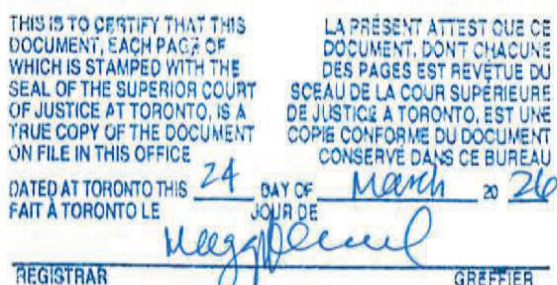 THIS IS TO CERTIFY THAT THIS
DOCUMENT, EACH PAGE OF
WHICH IS STAMPED WITH THE
SEAL OF THE SUPERIOR COURT
OF JUSTICE AT TORONTO, IS A
TRUE COPY OF THE DOCUMENT
ON FILE IN THIS OFFICE
LA PRÉSENT ATTEST QUE CE
DOCUMENT, DONT CHACUNE
DES PAGES EST REVÊTUE DU
SCEAU DE LA COUR SUPÉRIEURE
DE JUSTICE À TORONTO, EST UNE
COPIE CONFORME DU DOCUMENT
CONSERVÉ DANS CE BUREAU
DATED AT TORONTO THIS 24 DAY OF March 20 26
FAIT À TORONTO LE JOUR DE
REGISTRAR GREFFIER